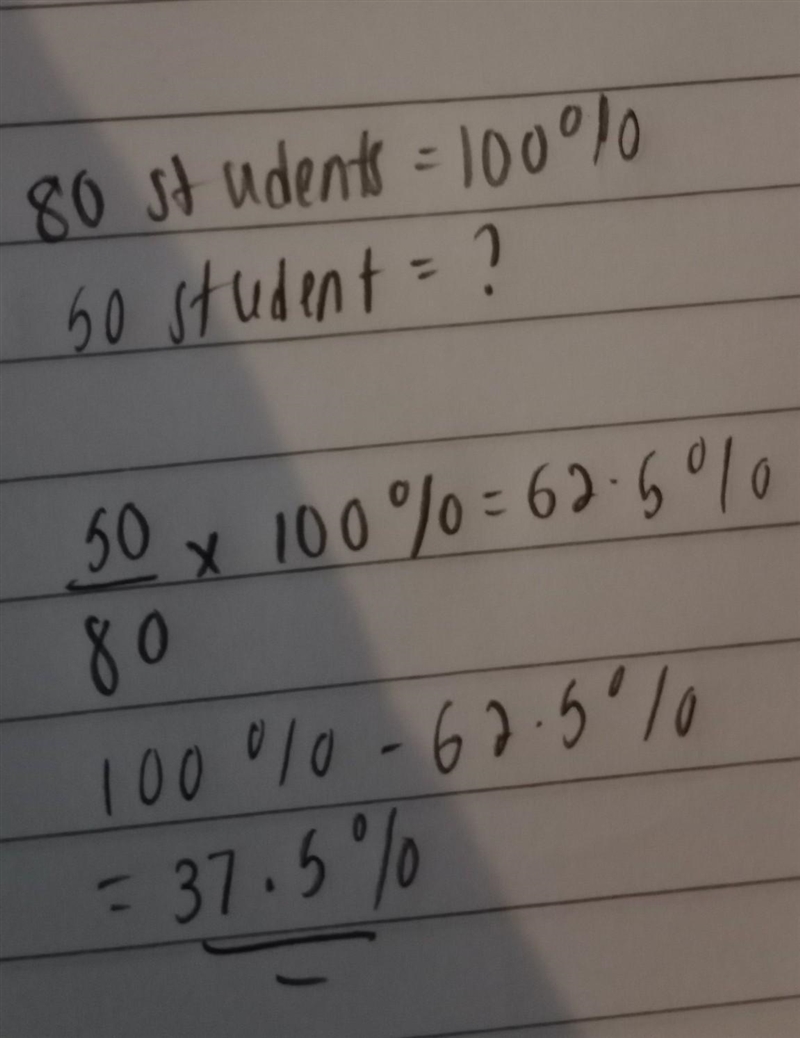 80 students = 100%
50 student = ?
50/80 x 100% = 62.5%
100% - 62.5%
= 37.5%